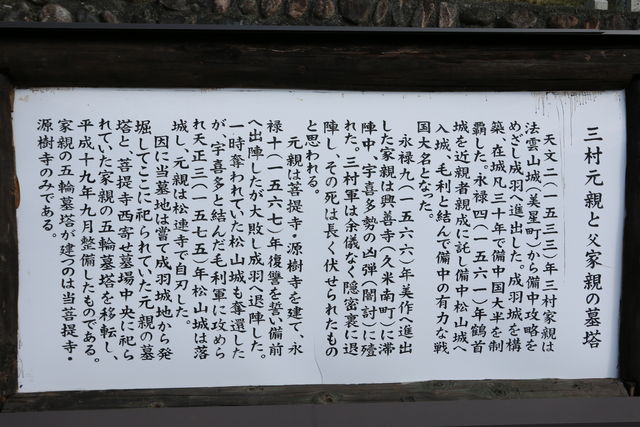 三村元親と父家親の墓塔
天文二(一五三三)年三村家親は
法雲山城(美星町)から備中攻略を
めざし成羽へ進出した。成羽城を構
築、在城凡三十年で備中国大半を制
覇した。永禄四(一五六一)年鶴首
城を近親者親成に託し備中松山城へ
入城、毛利と結んで備中の有力な戦
国大名となった。
永禄九(一五六六)年美作へ進出
した家親は興善寺(久米南町)に滞
陣中、宇喜多勢の凶弾(闇討)に殪
れた。三村軍は余儀なく隠密裏に退
陣し、その死は長く伏せられたもの
と思われる。
元親は菩提寺・源樹寺を建て、永
禄十(一五六七)年復讐を誓い備前
へ出陣したが大敗し成羽へ退陣した。
一時奪われていた松山城も奪還した
が、宇喜多と結んだ毛利軍に攻めら
れ天正三(一五七五)年松山城は落
城し、元親は松連寺で自刃した。
因に当墓地は嘗て成羽城地から発
堀してここに祀られていた元親の墓
塔と、菩提寺西寄せ墓場中央に祀ら
れていた家親の五輪墓塔を移転し、
平成十九年九月整備したものである。
家親の五輪墓塔が建つのは当菩提寺・
源樹寺のみである。